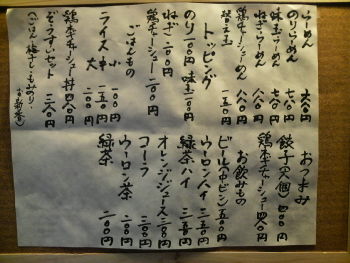 らーめん 六〇〇円
のりらーめん 七〇〇円
味玉らーめん 七〇〇円
ねぎらーめん 八〇〇円
チャーシューめん 八〇〇円
替え玉 一五〇円
トッピング
のり 一〇〇円 味玉 一〇〇円
ねぎ 二〇〇円
チャーシュー 二〇〇円
ごはんもの
ライス 小 一〇〇円
大 一五〇円
チャーシュー丼 四〇〇円
ぞうすいセット 三〇〇円
(ごはん・梅干し・もみのり・お新香)
おつまみ
餃子(六個) 四〇〇円
チャーシュー 四〇〇円
お飲みもの
ビール(中ビン) 五〇〇円
ウーロンハイ 三五〇円
緑茶ハイ 三五〇円
オレンジジュース 二〇〇円
コーラ 二〇〇円
ウーロン茶 二〇〇円
緑茶 二〇〇円